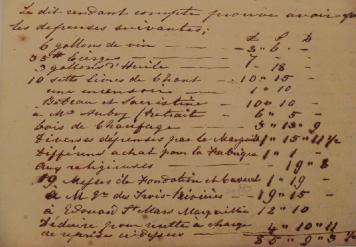 Le dit rendant compte prouve avoir
les depenses suivantes;
£ S D
6 gallons de vin 3 " 6 "
35 lb Cierge 7 "
3 gallons d'Huile 1 " 18
10 sette livres de Chant 10 " 15 "
une 1 " 10
Bedeau et Sacristine 10 " 10 "
à Mr Aubry (Retraite 6 " 5 "
bois de Chauffage 3 " 13 " 9
Diverses dépenses par le Marguillier 1 " 15 " 11 ½
Different achat pour la Fabrique 1 " 1
Aux religieuses 19 " 8
19 Messes de Fondation et Casuel 1 " 19
à M Gr des Trois-Rivières 19 " 15
à Edouard St Mars Marguillier 12 " 10
Deduire pour cette charge
de reprise ci dessus 4 " 10 " 11
85 " 9 " 3 ½